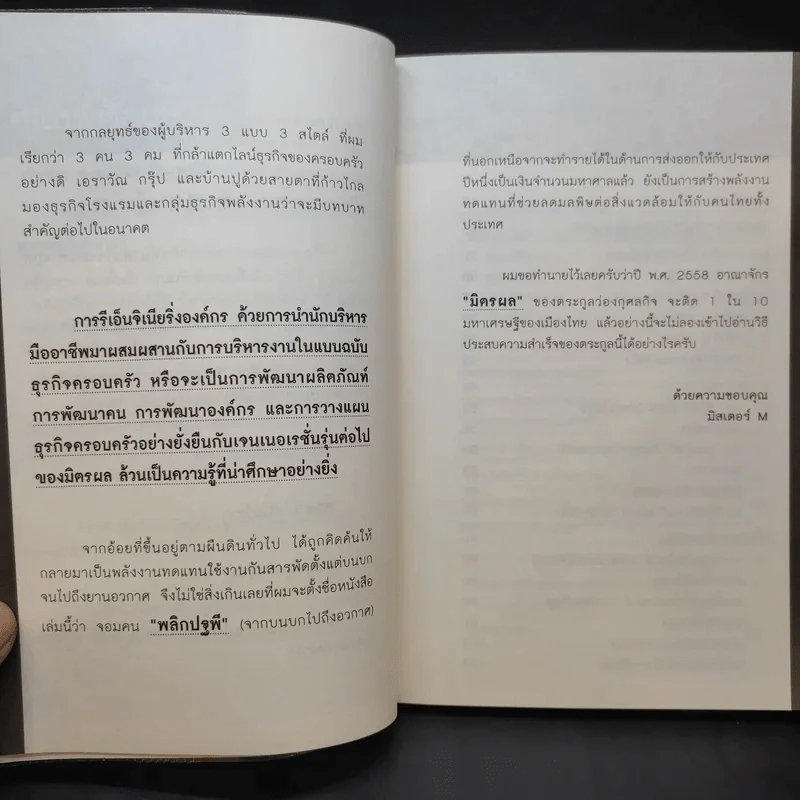 จากกลยุทธ์ของผู้บริหาร 3 แบบ 3 สไตล์ ที่ผม
เรียกว่า 3 คน 3 คม ที่กล้าแตกไลน์ธุรกิจของครอบครัว
อย่างดิ เอราวัณ กรุ๊ป และบ้านปูด้วยสายตาที่ก้าวไกล
มองธุรกิจโรงแรมและกลุ่มธุรกิจพลังงานว่าจะมีบทบาท
สำคัญต่อไปในอนาคต
การรีเอ็นจิเนียริ่งองค์กร ด้วยการนำนักบริหาร
มืออาชีพมาผสมผสานกับการบริหารงานในแบบฉบับ
ธุรกิจครอบครัว หรือจะเป็นการพัฒนาผลิตภัณฑ์
การพัฒนาคน การพัฒนาองค์กร และการวางแผน
ธุรกิจครอบครัวอย่างยั่งยืนกับเจนเนอเรชั่นรุ่นต่อไป
ของมิตรผล ล้วนเป็นความรู้ที่น่าศึกษาอย่างยิ่ง
จากอ้อยที่ขึ้นอยู่ตามผืนดินทั่วไป ได้ถูกคิดค้นให้
กลายมาเป็นพลังงานทดแทนใช้งานกันสารพัดตั้งแต่บนบก
จนไปถึงยานอวกาศ จึงไม่ใช่สิ่งเกินเลยที่ผมจะตั้งชื่อหนังสือ
เล่มนี้ว่า จอมคน "พลิกปฐพี" (จากบนบกไปถึงอวกาศ)
ที่นอกเหนือจากจะทำรายได้ในด้านการส่งออกให้กับประเทศ
ปีหนึ่งเป็นเงินจำนวนมหาศาลแล้ว ยังเป็นการสร้างพลังงาน
ทดแทนที่ช่วยลดมลพิษต่อสิ่งแวดล้อมให้กับคนไทยทั้ง
ประเทศ
ผมขอทำนายไว้เลยครับว่าปี พ.ศ. 2558 อาณาจักร
"มิตรผล" ของตระกูลว่องกุศลกิจ จะติด 1 ใน 10
มหาเศรษฐีของเมืองไทย แล้วอย่างนี้จะไม่ลองเข้าไปอ่านวิธี
ประสบความสำเร็จของตระกูลนี้ได้อย่างไรครับ
ด้วยความขอบคุณ
มิสเตอร์ M